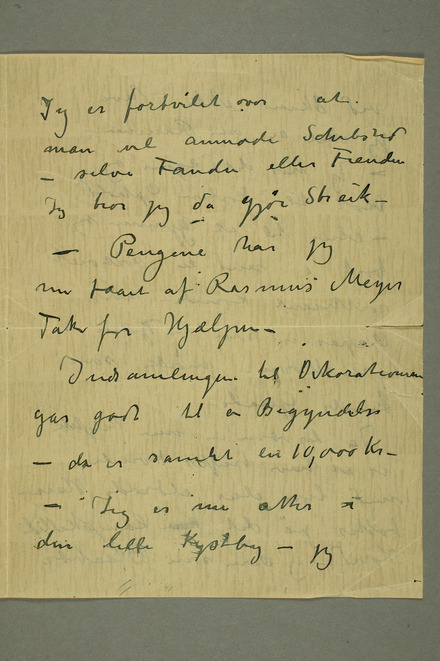 Jeg er fortvilet over at
man vil anmode Schibsted
– selve Fanden eller Fienden
Jeg tror jeg da gjør Streik –
– Pengene har jeg
nu faaet af Rasmus Meyer
Tak for Hjælpen –
Indsamlingen til Dekorationen
gar godt til en Begyndelse
– da er samlet en 10,000 Kr –
– Jeg er nu atter i
din lille Kystby – jeg